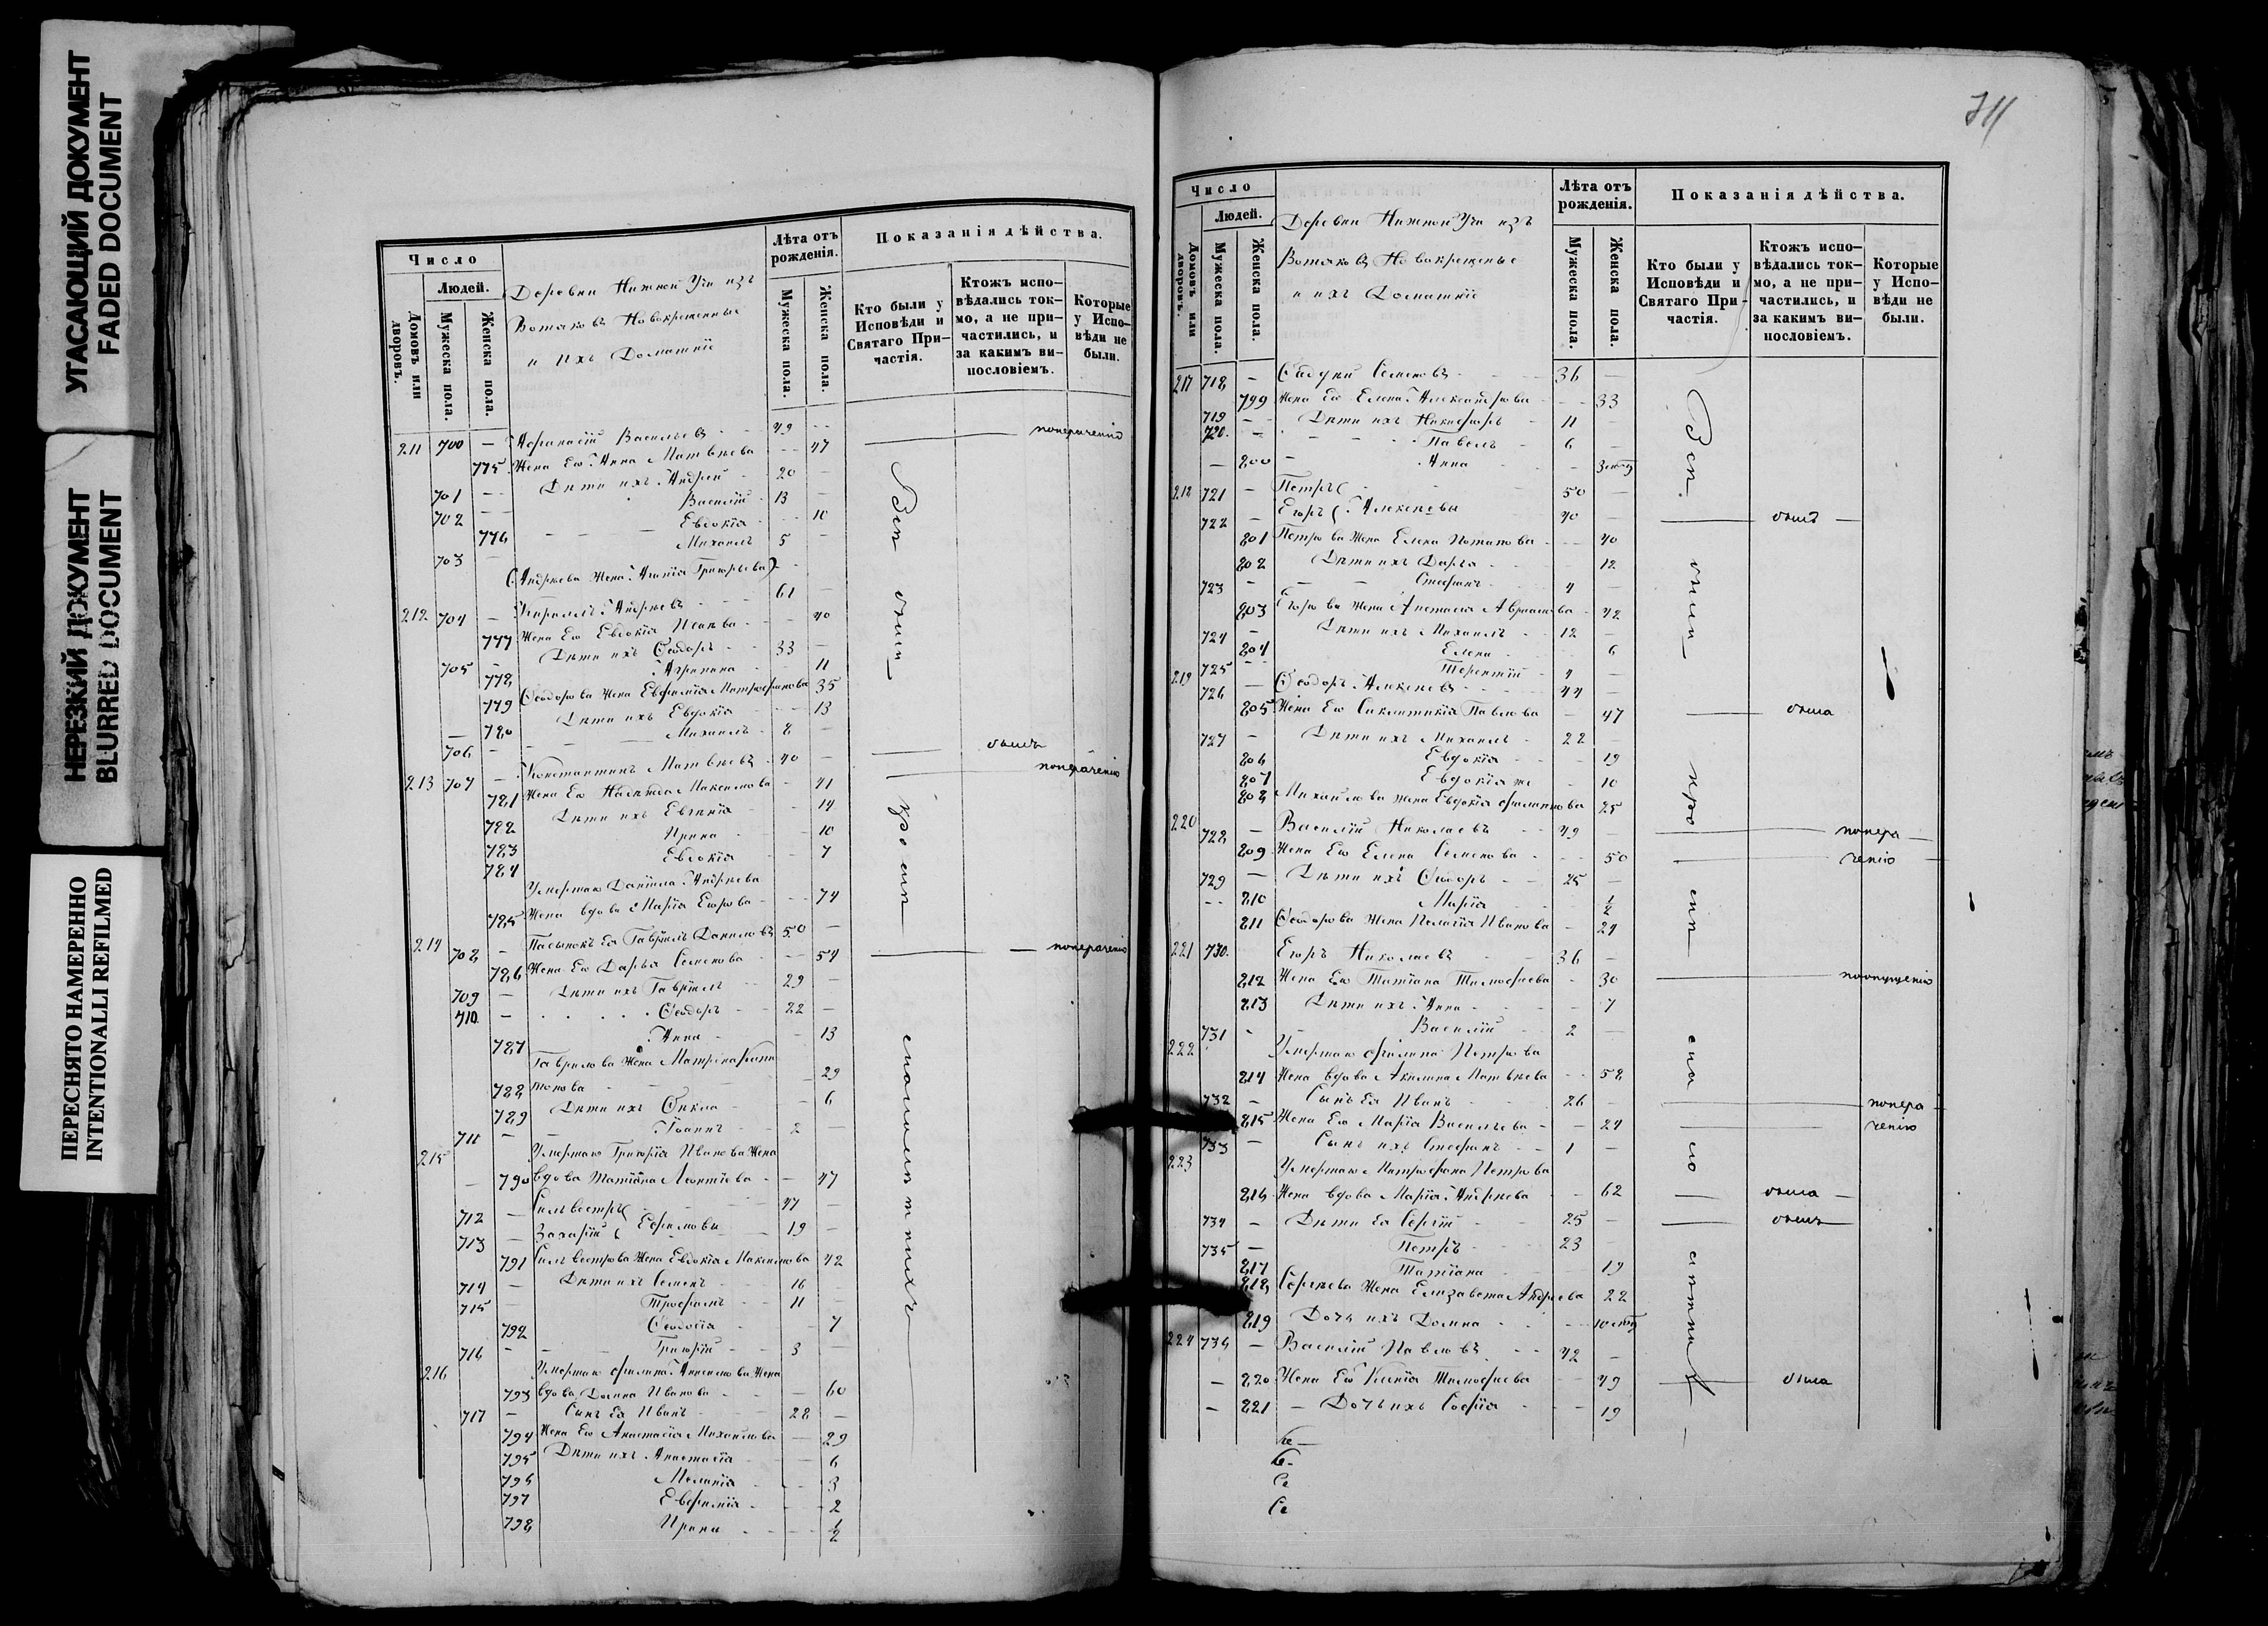 УГАСАЮЩИЙ ДОКУМЕНТ
FADED DOCUMENT
НЕРЕЗКИЙ ДОКУМЕНТ
BLURRED DOCUMENT
ПЕРЕСНЯТО НАМЕРЕННО
INTENTIONALLI REFILMED
Число
Людей.
Домовъ или дворовъ.
Мужеска пола.
Женска пола.
Деревни Нижней Учи изъ
Вотяковъ Новокрещенные
и ихъ Домашніе
Лѣта отъ рожденія.
Мужеска пола.
Женска пола.
Показанія дѣйства.
Кто были у Исповѣди и Святаго При-частія.
Ктожъ испо-вѣдались ток-мо, а не при-частились, и за какимъ ви-нословіемъ.
Которые у Испо-вѣди не были.
211 700 — Афанасій Васильевъ 49 — понераченію
775 Жена Его Анна Матвѣева 47
701 — Дѣти ихъ Андрей 20
702 — Василій 13
776 Евдокія 10
703 — Михаилъ 5
(Андреева Жена Агапія Григорьева)
212 704 — Кириллъ Андреевъ 61
777 Жена Его Евдокія Исаева 40
705 — Дѣти ихъ Ѳеодоръ 33
778 Агрипина 11
779 Ѳеодорова Жена Евфимія Митрофанова 35
780 Дѣти ихъ Евдокія 13
706 — Михаилъ 8
213 707 — Константинъ Матвѣевъ 40 — былъ
781 Жена Его Надежда Максимова 41 понераченію
782 Дѣти ихъ Евгенія 14
783 Ирина 10
784 Евдокія 7
Умершаго Даніила Андреева
785 Жена вдова Марія Егорова 74
214 708 — Пасынокъ Ея Гавріилъ Даниловъ 50
786 Жена Его Дарья Семенова 54 — понераченію
709 — Дѣти ихъ Гавріилъ 29
710 — Ѳеодоръ 22
787 Анна 13
Гаврилова Жена Матрена Капи
788 тонова 29
789 Дѣти ихъ Ѳекла 6
711 — Іоаннъ 2
215 Умершаго Григорія Иванова Жена
790 вдова Татіана Леонтіева 47
712 — Сильвестръ 47
713 — Захарій Ефимовы 19
791 Сильвестрова Жена Евдокія Максимова 42
714 — Дѣти ихъ Семенъ 16
715 — Трофимъ 11
792 Ѳеодосія 7
716 — Григорій 3
216 Умершаго Филипа Анисимова Жена
793 вдова Домна Иванова 60
717 — Сынъ Ея Иванъ 28
794 Жена Его Анастасія Михайлова 29
795 Дѣти ихъ Анастасія 6
796 Меланія 3
797 Евфимія 2
798 Ирина 1/2
Всѣ были
Число
Людей.
Домовъ или дворовъ.
Мужеска пола.
Женска пола.
Деревни Нижней Учи изъ
Вотяковъ Новокрещеные
и ихъ Домашніе
Лѣта отъ рожденія.
Мужеска пола.
Женска пола.
Показанія дѣйства.
Кто были у Исповѣди и Святаго При-частія.
Ктожъ испо-вѣдались ток-мо, а не при-частились, и за какимъ ви-нословіемъ.
Которые у Испо-вѣди не были.
217 718 — Семеновъ 36
799 Жена Его Елена Александрова 33
719 — Дѣти ихъ Никифоръ 11
720 — Павелъ 6
800 Анна
218 721 — Петръ 50
722 — Егоръ Алексѣевы 40 — былъ
801 Петрова Жена Елена Потапова 40
802 Дѣти ихъ Дарья 12
723 — Стефанъ 4
803 Егорова Жена Анастасія 42
724 — Дѣти ихъ Михаилъ 12
804 Елена 6
725 — Терентій 4
219 726 — Ѳеодоръ Алексѣевъ 44
805 Жена Его Синклитикія Павлова 47 — была
727 — Дѣти ихъ Михаилъ 22
806 Евдокія 19
807 Евдокія же 10
808 Михайлова жена Евдокія Филиппова 25
220 728 — Василій Николаевъ 49 — понера
809 Жена Его Елена Семенова 50 — ченію
729 — Дѣти ихъ Ѳеодоръ 25
810 Марія 1/2
811 Ѳеодорова Жена Пелагія Иванова 24
221 730 Егоръ Николаевъ 36
812 Жена Его Татіана Тимофеева 30 — поопущенію
813 Дѣти ихъ Анна 7
731 — Василій 2
222 Умершаго Филипа Петрова
814 Жена вдова Акилина Матвѣева 58
732 — Сынъ Ея Иванъ 26 — понера
815 Жена Его Марія Васильева 24 — ченію
733 — Сынъ ихъ Стефанъ 1
223 Умершаго Митрофана Петрова
816 Жена вдова Марія Андреева 62 — была
734 — Дѣти Ея Сергій 25 — былъ
735 — Петръ 23
817 Татіана 19
818 Сергѣева Жена Елизавета Андреева 22
819 Дочь ихъ Домна
224 736 — Василій Павловъ 42
820 Жена Его Ксенія Тимофеева 49 — была
821 — Дочь ихъ Софія 19
Всѣ были